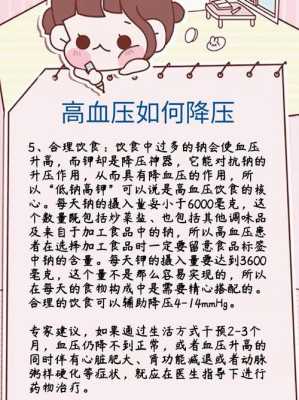 高血压如何降压
5、合理饮食：饮食中过多的钠会使血压
升高，而钾却是降压神器，它能对抗钠的
升压作用，从而具有降血压的作用，所
以“低钠高钾”可以说是高血压饮食的核
心。每天钠的摄入量要小于6000毫克，这
个数量既包括炒菜盐、也包括其他调味品
及来自于加工食品中的钠，所以高血压患
者在选择加工食品时一定要留意食品标签
中钠的含量。每天钾的摄入量要达到3600
毫克，这个量不是那么容易实现的，所以
在每天的食物构成中是需要精心搭配的。
合理的饮食可以辅助降压4-14mmHg。
专家建议，如果通过生活方式干预2-3个
月，血压仍降不到正常，或者血压升高的
同时伴有心脏肥大、肾功能减退或者动脉
粥样硬化等症状，就应在医生指导下进行
药物治疗。